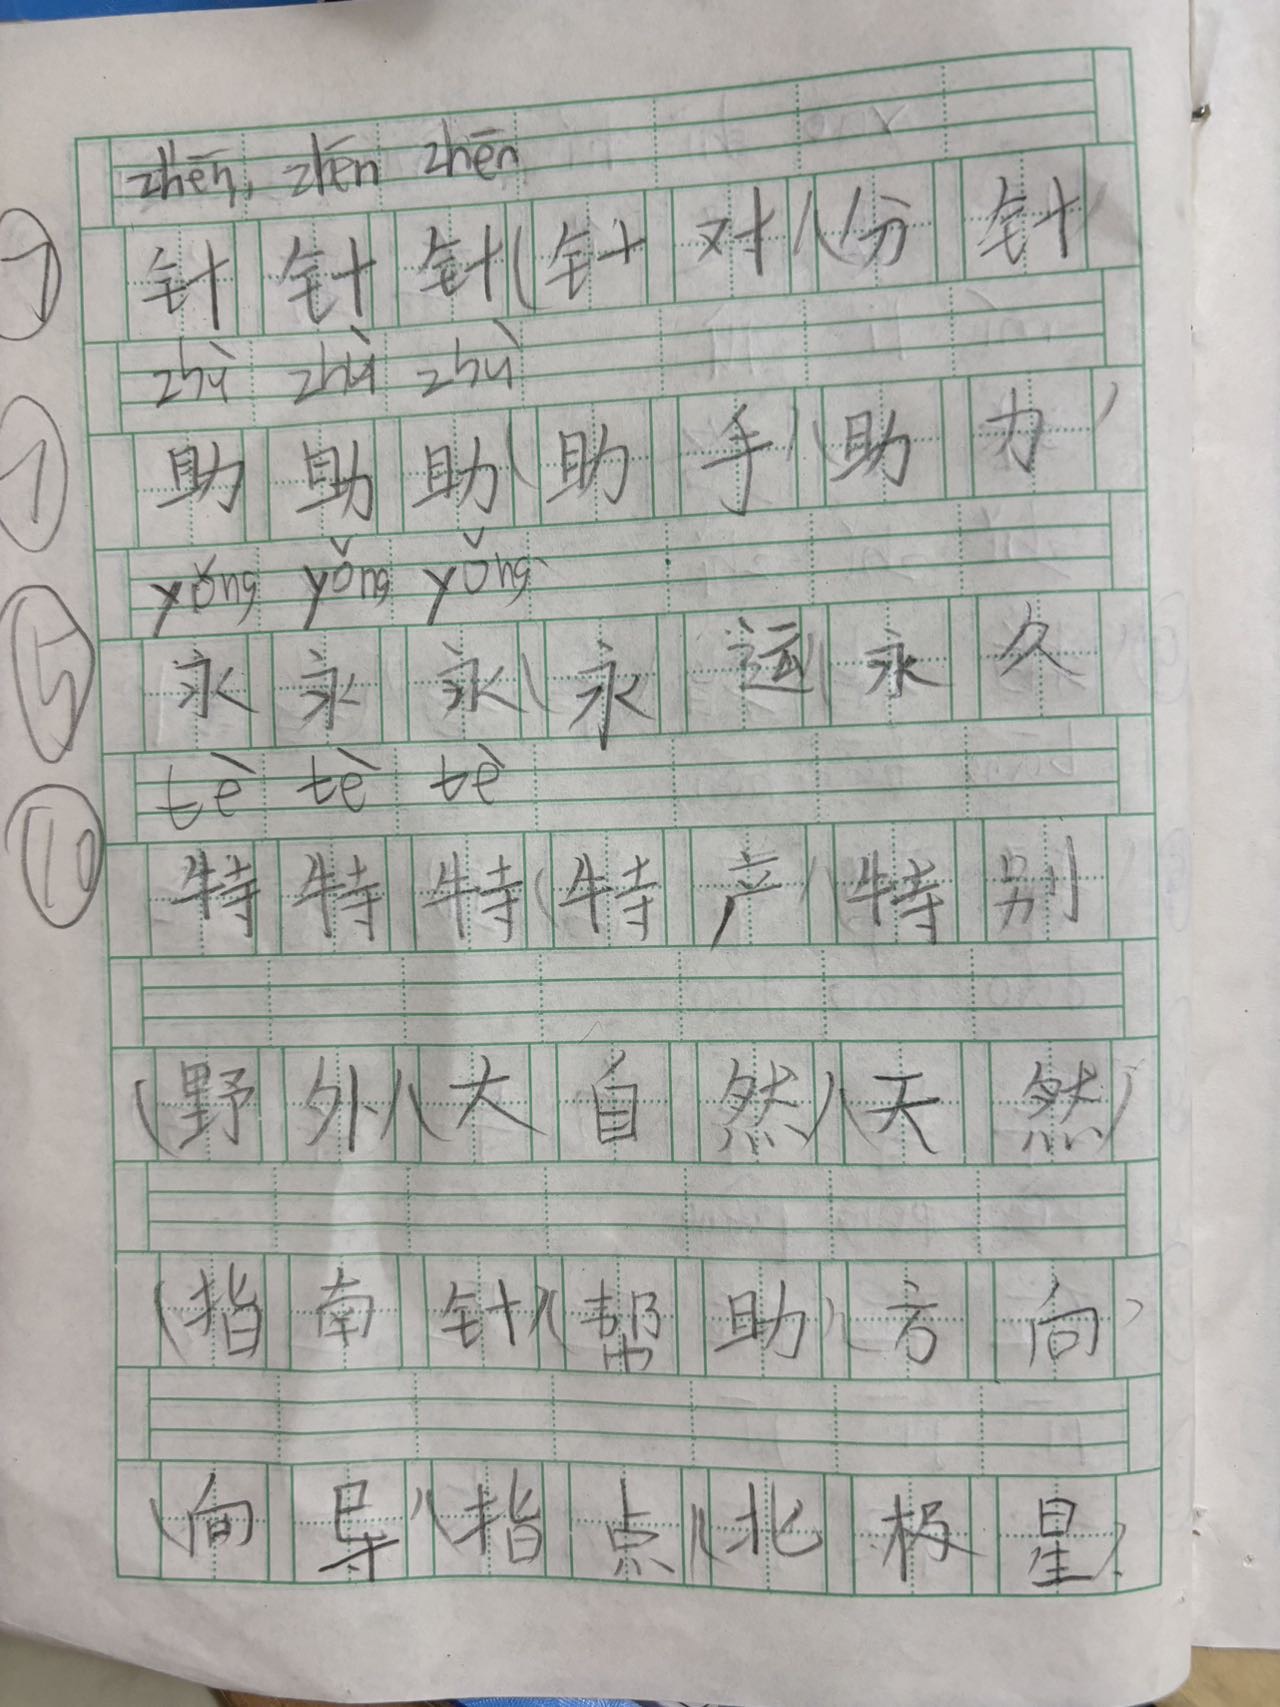 zhēn, zhēn zhēn
⑦ 针 针 针(针对)(分针)
zhù zhù zhù
⑦ 助 助 助(助手)(助力)
yǒng yǒng yǒng
⑤ 永 永 永(永远)(永久
tè tè tè
⑩ 特 特 特(特产)(特别
(野外)(大自然)(天然)
(指南针)(帮助)(方向)
(向导)(指点)(北极星)